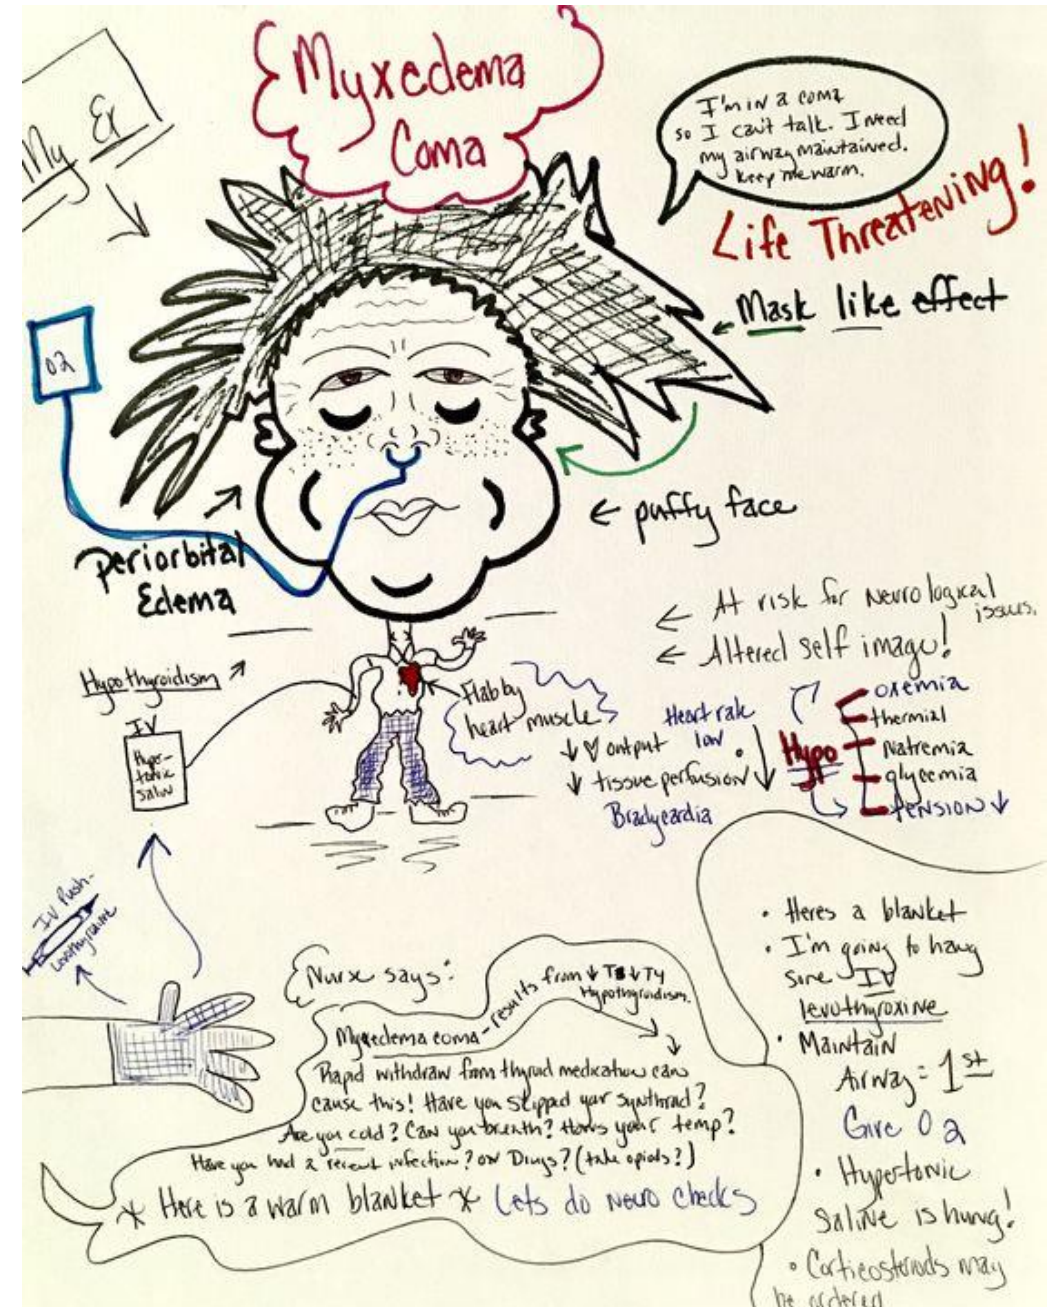 Myxedema
Coma
My Ex
I'm in a coma
so I can't talk. I need
my airway maintained.
keep me warm.
Life Threatening!
Mask like effect
O2
puffy face
Periorbital
Edema
At risk for Neurological
issues.
Altered self image!
Hypothyroidism
IV
Hyper-
tonic
saline
Flabby
heart muscle
Heart rate
low
↓ ♡ output
↓ tissue perfusion ↓
Bradycardia
Hypo
oxemia
thermial
Natremia
glycemia
tension ↓
IV Push-
Levothyroxine
Nurse says:
Myxedema coma - results from ↓ T3 ↓ T4
Hypothyroidism.
Rapid withdraw from thyroid medication can
cause this! Have you stopped your synthroid?
Are you cold? Can you breath? Hows your temp?
Have you had a recent infection? or Drugs? (take opiods?)
* Here is a warm blanket * Lets do neuro checks
• Heres a blanket
• I'm going to hang
some IV
levothyroxine
• Maintain
Airway = 1st
Give O2
• Hypertonic
Saline is hung!
• Corticosteriods may
be ordered